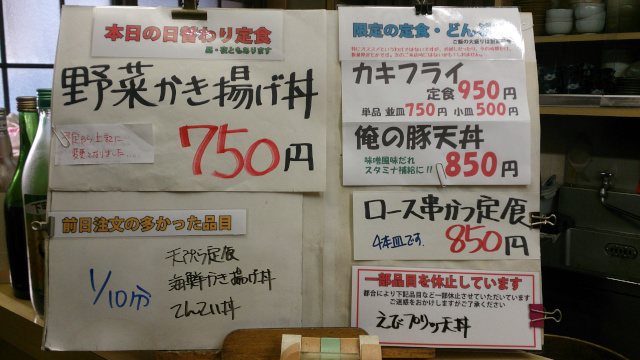 本日の日替わり定食
昼・夜ともあります
野菜かき揚げ丼
750円
予定から上記に
変更となりました…
前日注文の多かった品目
1/10分
天ぷら定食
海鮮かき揚げ丼
てんてい丼
限定の定食・どんぶり
カキフライ
定食950円
単品 並皿750円 小皿500円
俺の豚天丼
味噌風味だれ
スタミナ補給に!!
850円
ロース串かつ定食
4本皿です.
850円
一部品目を休止しています
都合により下記品目など一部休止させていただいています
ご迷惑をおかけしますがご了承ください
えびプリッツ天丼